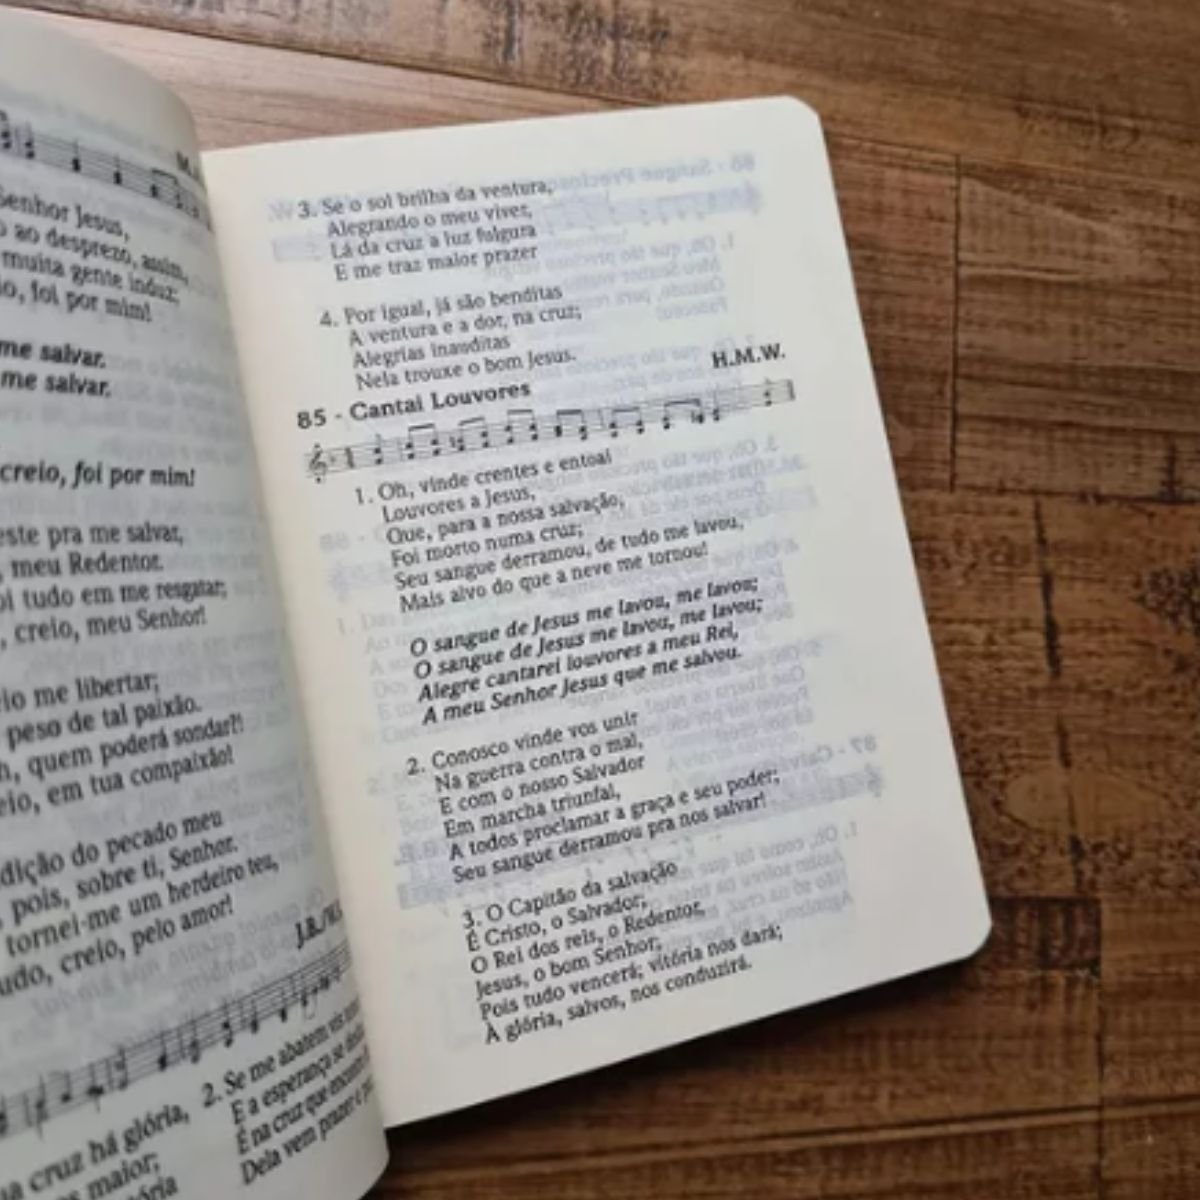 M.
Senhor Jesus,
o ao desprezo, assim,
muita gente induz;
io, foi por mim!
me salvar.
me salvar.
creio, foi por mim!
este pra me salvar,
, meu Redentor.
oi tudo em me resgatar;
, creio, meu Senhor!
io me libertar;
peso de tal paixão.
h, quem poderá sondar?!
eio, em tua compaixão!
dição do pecado meu
, pois, sobre ti, Senhor.
tornei-me um herdeiro teu,
udo, creio, pelo amor!
na cruz há glória,
maior;
2. Se me abatem
E a esperança se
É na cruz que
Dela vem prazer e
3. Se o sol brilha da ventura,
Alegrando o meu viver,
Lá da cruz a luz fulgura
E me traz maior prazer
4. Por igual, já são benditas
A ventura e a dor, na cruz;
Alegrias inauditas
Nela trouxe o bom Jesus.
85 - Cantai Louvores H.M.W.
1. Oh, vinde crentes e entoai
Louvores a Jesus,
Que, para a nossa salvação,
Foi morto numa cruz;
Seu sangue derramou, de tudo me lavou,
Mais alvo do que a neve me tornou!
O sangue de Jesus me lavou, me lavou;
O sangue de Jesus me lavou, me lavou;
Alegre cantarei louvores a meu Rei,
A meu Senhor Jesus que me salvou.
2. Conosco vinde vos unir
Na guerra contra o mal,
E com o nosso Salvador
Em marcha triunfal,
A todos proclamar a graça e seu poder;
Seu sangue derramou pra nos salvar!
3. O Capitão da salvação
É Cristo, o Salvador,
O Rei dos reis, o Redentor,
Jesus, o bom Senhor;
Pois tudo vencerá; vitória nos dará;
À glória, salvos, nos conduzirá.